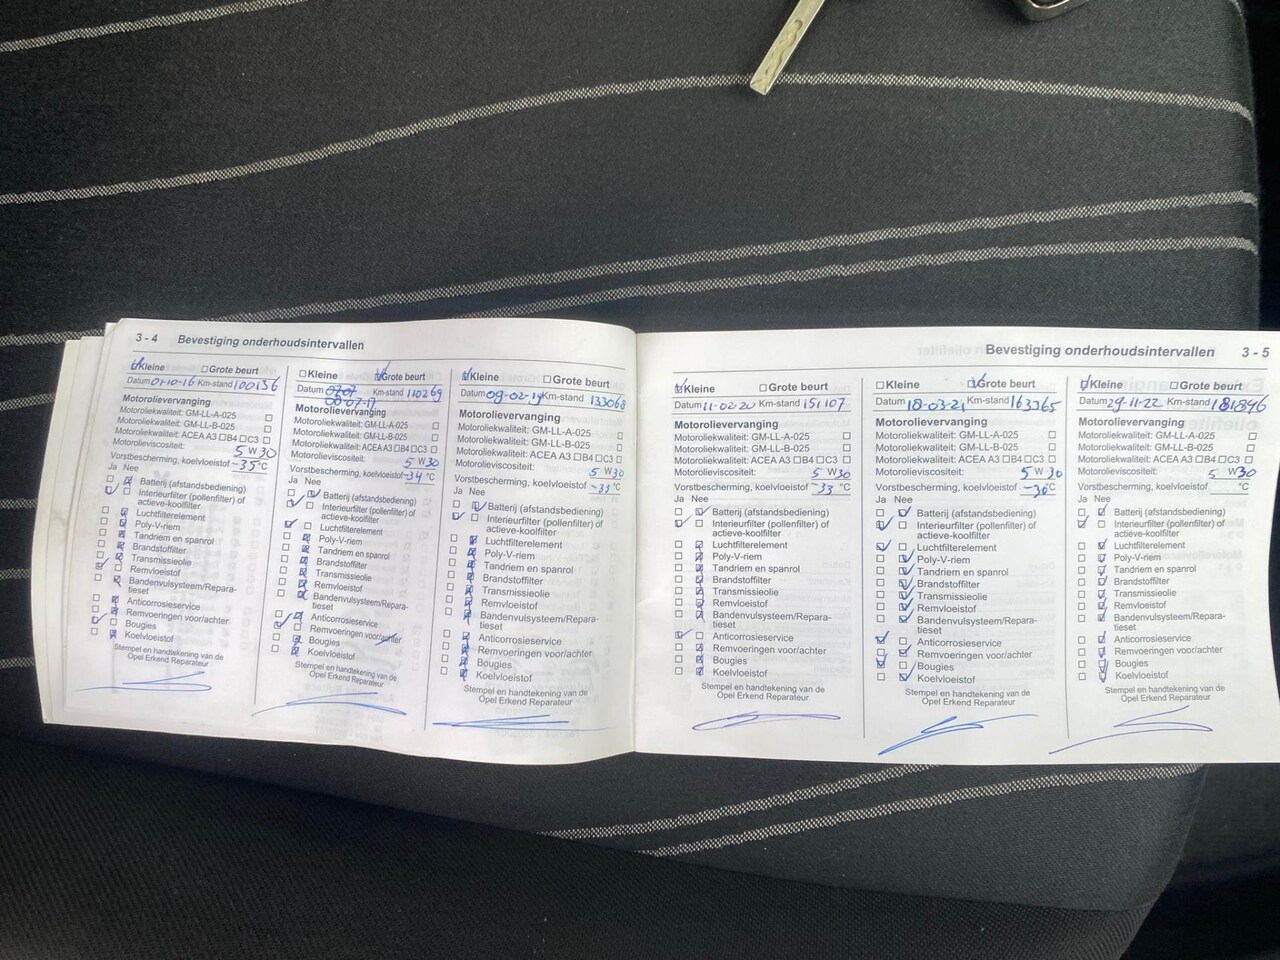 3 - 4 Bevestiging onderhoudsintervallen
Kleine Grote beurt
Datum 01-10-16 Km-stand 100136
Motorolievervanging
Motoroliekwaliteit: GM-LL-A-025
Motoroliekwaliteit: GM-LL-B-025
Motoroliekwaliteit: ACEA A3 B4 C3
Motorolieviscositeit: 5 W 30
Vorstbescherming, koelvloeistof -35 °C
Ja Nee
Batterij (afstandsbediening)
Interieurfilter (pollenfilter) of
actieve-koolfilter
Luchtfilterelement
Poly-V-riem
Tandriem en spanrol
Brandstoffilter
Transmissieolie
Remvloeistof
Bandenvulsysteem/Repara-
tieset
Anticorrosieservice
Remvoeringen voor/achter
Bougies
Koelvloeistof
Stempel en handtekening van de
Opel Erkend Reparateur
Kleine Grote beurt
Datum 07-17 Km-stand 110269
Motorolievervanging
Motoroliekwaliteit: GM-LL-A-025
Motoroliekwaliteit: GM-LL-B-025
Motoroliekwaliteit: ACEA A3 B4 C3
Motorolieviscositeit: 5 W 30
Vorstbescherming, koelvloeistof -34 °C
Ja Nee
Batterij (afstandsbediening)
Interieurfilter (pollenfilter) of
actieve-koolfilter
Luchtfilterelement
Poly-V-riem
Tandriem en spanrol
Brandstoffilter
Transmissieolie
Remvloeistof
Bandenvulsysteem/Repara-
tieset
Anticorrosieservice
Remvoeringen voor/achter
Bougies
Koelvloeistof
Stempel en handtekening van de
Opel Erkend Reparateur
Kleine Grote beurt
Datum 09-02-19 Km-stand 133068
Motorolievervanging
Motoroliekwaliteit: GM-LL-A-025
Motoroliekwaliteit: GM-LL-B-025
Motoroliekwaliteit: ACEA A3 B4 C3
Motorolieviscositeit: 5 W 30
Vorstbescherming, koelvloeistof -33 °C
Ja Nee
Batterij (afstandsbediening)
Interieurfilter (pollenfilter) of
actieve-koolfilter
Luchtfilterelement
Poly-V-riem
Tandriem en spanrol
Brandstoffilter
Transmissieolie
Remvloeistof
Bandenvulsysteem/Repara-
tieset
Anticorrosieservice
Remvoeringen voor/achter
Bougies
Koelvloeistof
Stempel en handtekening van de
Opel Erkend Reparateur
Bevestiging onderhoudsintervallen 3 - 5
Kleine Grote beurt
Datum 11-02-20 Km-stand 151107
Motorolievervanging
Motoroliekwaliteit: GM-LL-A-025
Motoroliekwaliteit: GM-LL-B-025
Motoroliekwaliteit: ACEA A3 B4 C3
Motorolieviscositeit: 5 W 30
Vorstbescherming, koelvloeistof -33 °C
Ja Nee
Batterij (afstandsbediening)
Interieurfilter (pollenfilter) of
actieve-koolfilter
Luchtfilterelement
Poly-V-riem
Tandriem en spanrol
Brandstoffilter
Transmissieolie
Remvloeistof
Bandenvulsysteem/Repara-
tieset
Anticorrosieservice
Remvoeringen voor/achter
Bougies
Koelvloeistof
Stempel en handtekening van de
Opel Erkend Reparateur
Kleine Grote beurt
Datum 18-03-21 Km-stand 163365
Motorolievervanging
Motoroliekwaliteit: GM-LL-A-025
Motoroliekwaliteit: GM-LL-B-025
Motoroliekwaliteit: ACEA A3 B4 C3
Motorolieviscositeit: 5 W 30
Vorstbescherming, koelvloeistof -30 °C
Ja Nee
Batterij (afstandsbediening)
Interieurfilter (pollenfilter) of
actieve-koolfilter
Luchtfilterelement
Poly-V-riem
Tandriem en spanrol
Brandstoffilter
Transmissieolie
Remvloeistof
Bandenvulsysteem/Repara-
tieset
Anticorrosieservice
Remvoeringen voor/achter
Bougies
Koelvloeistof
Stempel en handtekening van de
Opel Erkend Reparateur
Kleine Grote beurt
Datum 29-11-22 Km-stand 181896
Motorolievervanging
Motoroliekwaliteit: GM-LL-A-025
Motoroliekwaliteit: GM-LL-B-025
Motoroliekwaliteit: ACEA A3 B4 C3
Motorolieviscositeit: 5 W 30
Vorstbescherming, koelvloeistof °C
Ja Nee
Batterij (afstandsbediening)
Interieurfilter (pollenfilter) of
actieve-koolfilter
Luchtfilterelement
Poly-V-riem
Tandriem en spanrol
Brandstoffilter
Transmissieolie
Remvloeistof
Bandenvulsysteem/Repara-
tieset
Anticorrosieservice
Remvoeringen voor/achter
Bougies
Koelvloeistof
Stempel en handtekening van de
Opel Erkend Reparateur